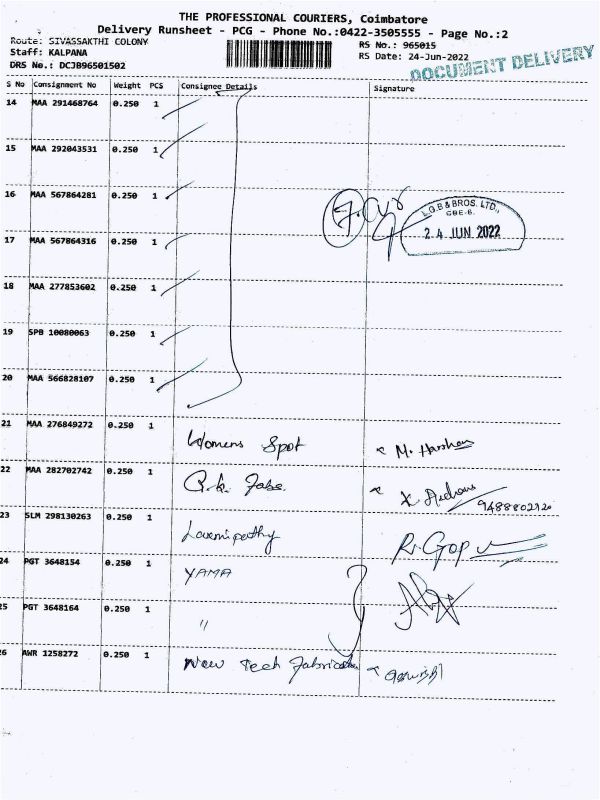 THE PROFESSIONAL COURIERS, Coimbatore
Delivery Runsheet - PCG - Phone No.:0422-3505555 - Page No.:2
Route: SIVASSAKTHI COLONY
RS No.: 965015
Staff: KALPANA
RS Date: 24-Jun-2022
DRS No.: DCJB96501502
DOCUMENT DELIVERY
S No Consignment No Weight PCS Consignee Details Signature
14 MAA 291468764 0.250 1
15 MAA 292043531 0.250 1
16 MAA 567864281 0.250 1
L.G.B & BROS. LTD.,
CBE-6.
24 JUN 2022
17 MAA 567864316 0.250 1
18 MAA 277853602 0.250 1
19 SPB 10080063 0.250 1
20 MAA 566828107 0.250 1
21 MAA 276849272 0.250 1 Womens Spot M. Harshan
22 MAA 282702742 0.250 1
9488802120
23 SLM 298130263 0.250 1 R. Gop
24 PGT 3648154 0.250 1 YAMA
25 PGT 3648164 0.250 1 "
26 AWR 1258272 0.250 1 New Tech